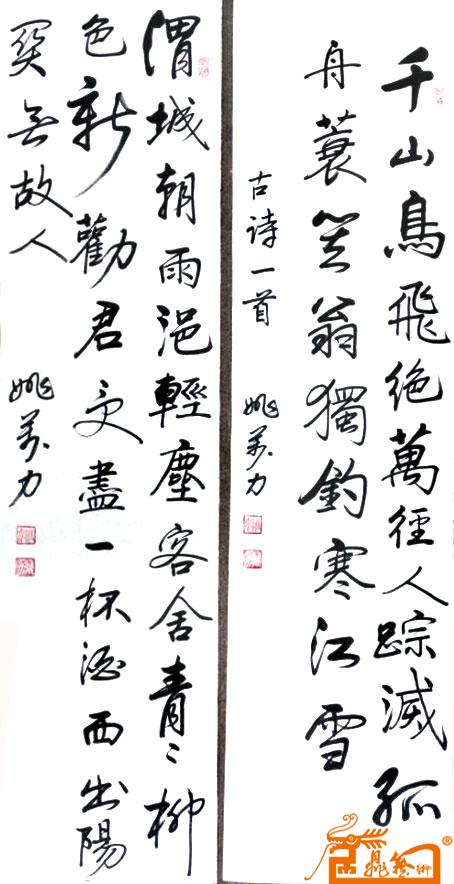 千山鳥飛絶萬径人踪滅孤
舟蓑笠翁獨釣寒江雪
古诗一首
姚萬力
渭城朝雨浥輕塵客舍青々柳
色新勸君更盡一杯酒西出陽
関无故人
姚萬力